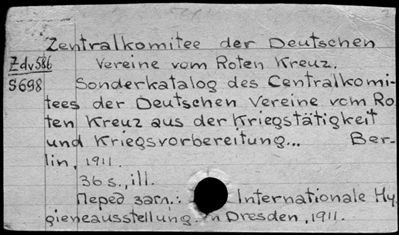 Zentralkomitee der Deutschen
Zdv586 Vereine vom Roten Kreuz.
S698 Sonderkatalog des Centralkomi-
tees der Deutschen Vereine vom Ro
ten Kreuz aus der Kriegstätigkeit
und Kriegsvorbereitung... Ber-
lin, 1911.
36 s., ill.
Перед загл.: Internationale Hy
gieneausstellung in Dresden, 1911.